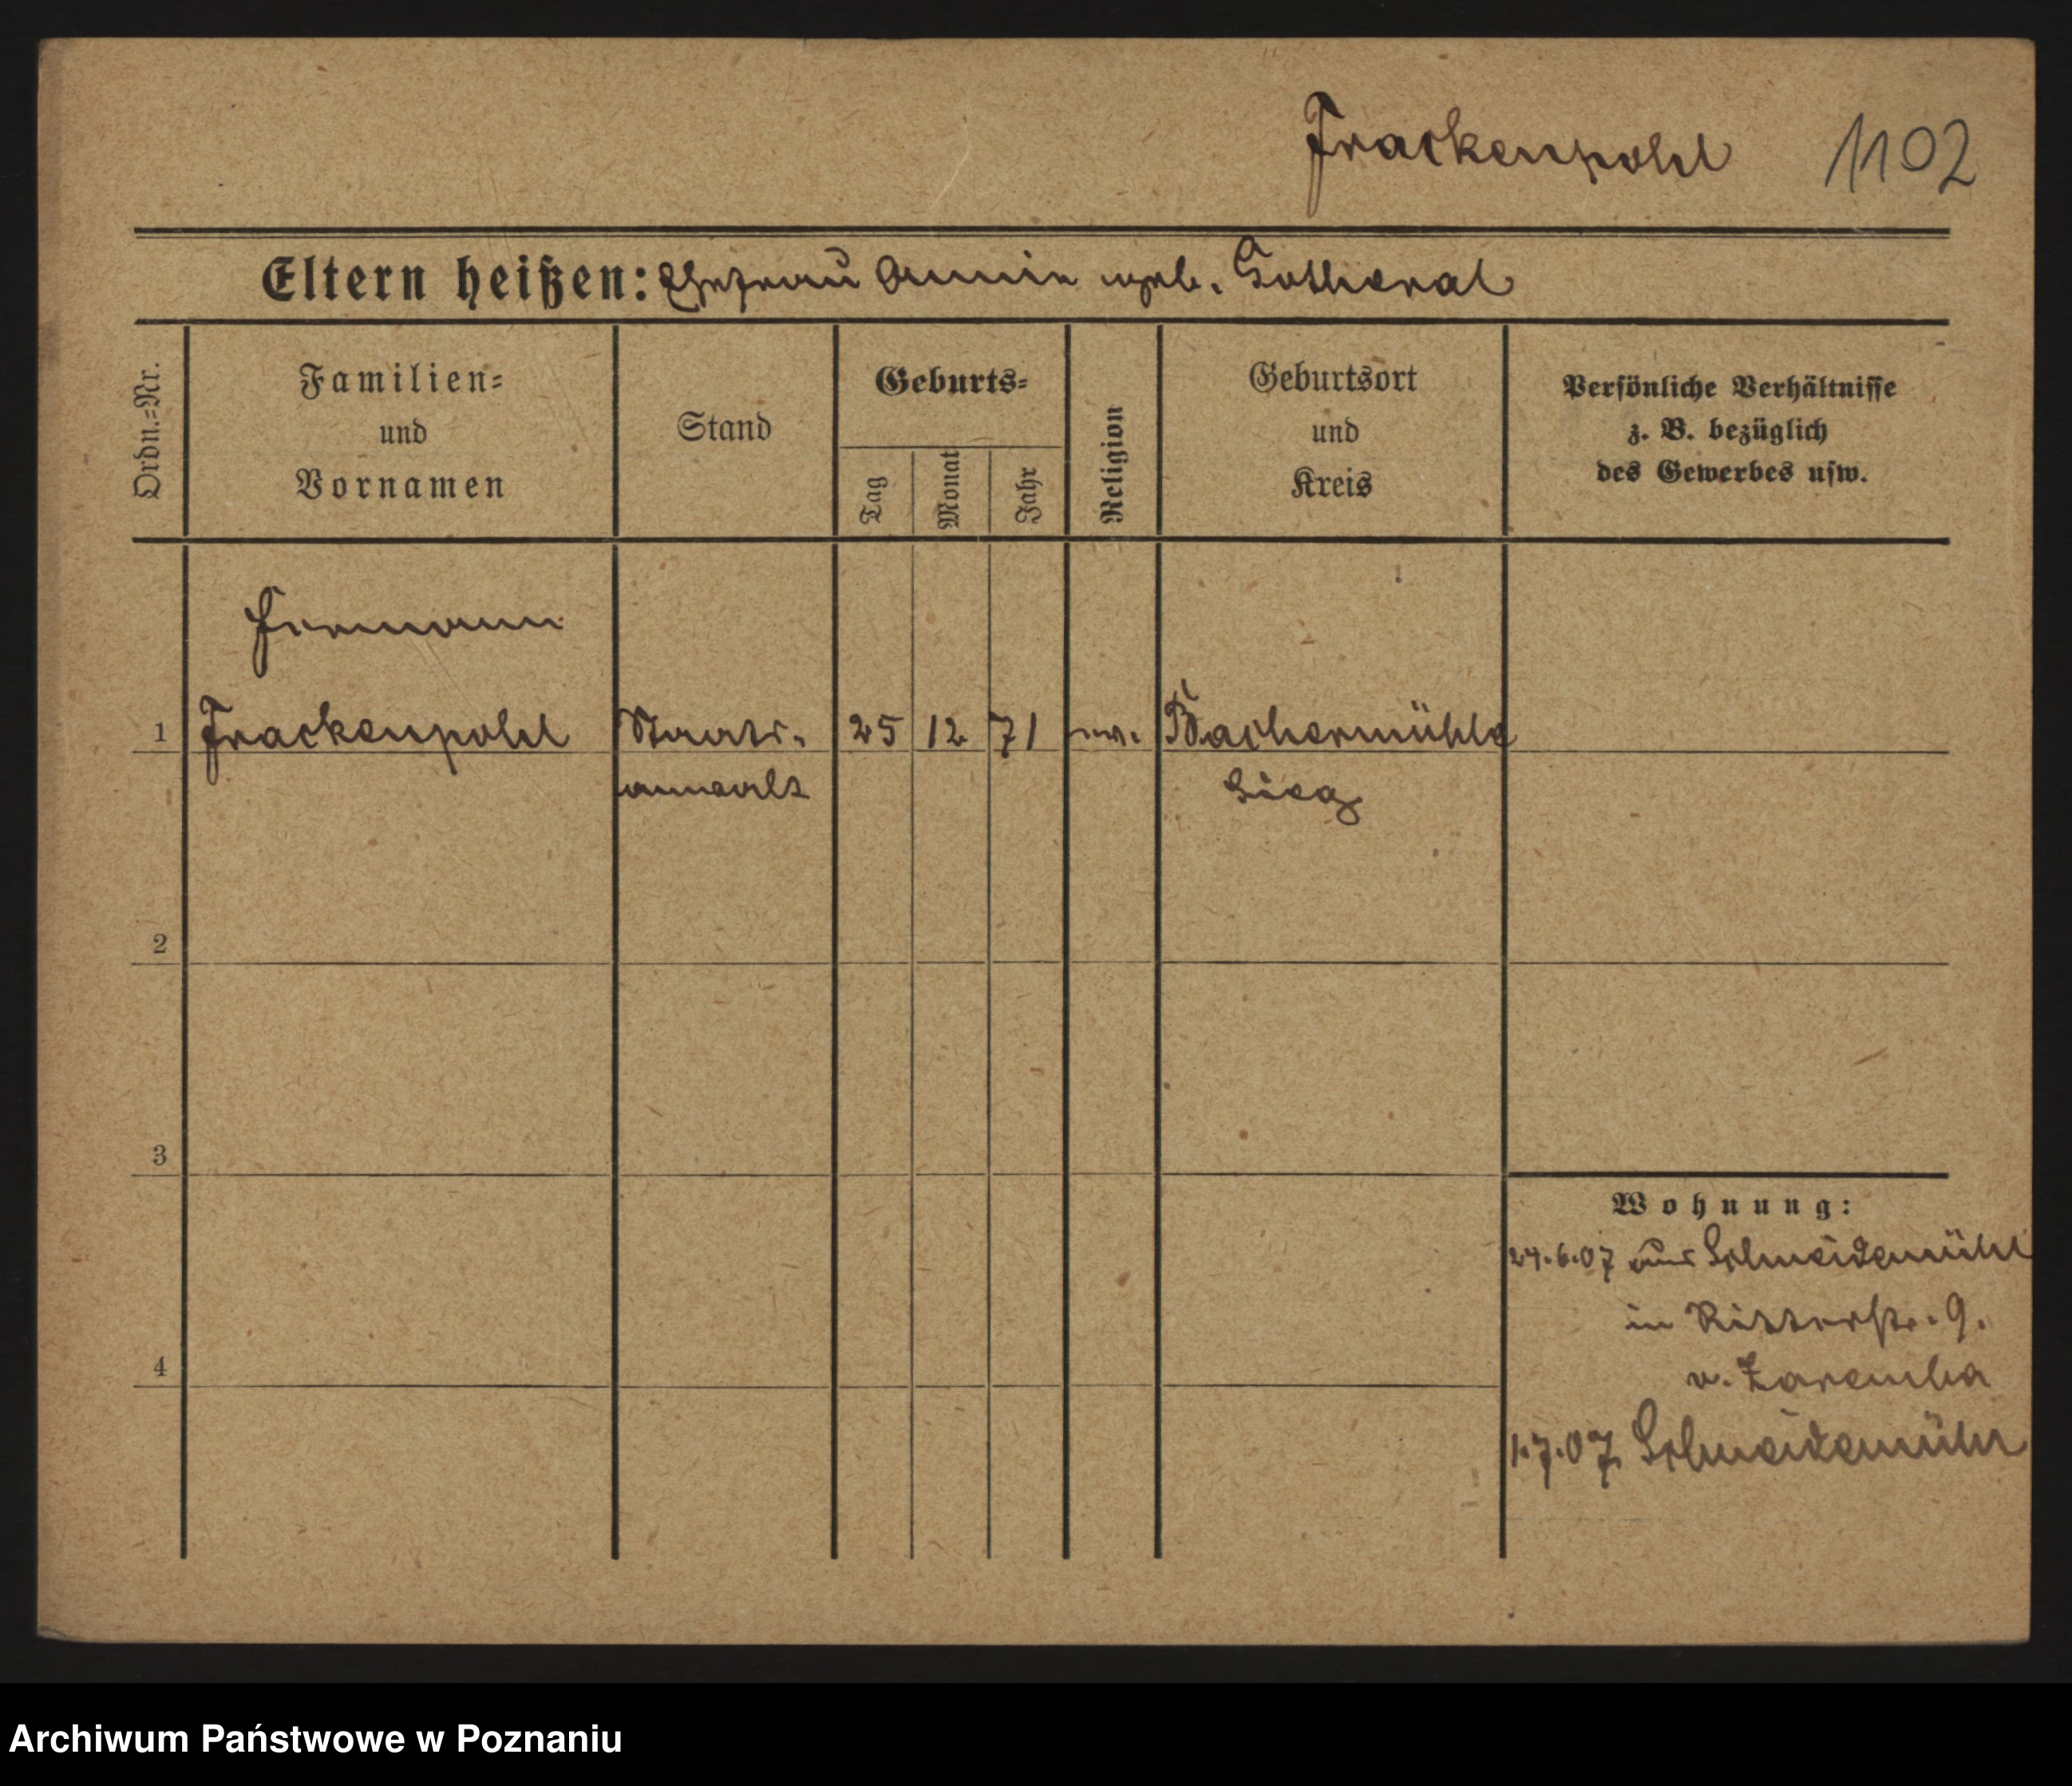 Frackenpohl 1102
Eltern heißen: Ehefrau Annin geb. Gotheral
Ordn.-Nr.
Familien-
und
Vornamen
Stand
Geburts-
Tag
Monat
Jahr
Religion
Geburtsort
und
Kreis
Persönliche Verhältnisse
z. B. bezüglich
des Gewerbes usw.
Hermann
1 Frackenpohl Staats- 25 12 71 ev. Bachermühle
anwalt Sieg
2
3
Wohnung:
24.6.07 aus Schneidemühl
in Ritterstr. 9.
4
v. Zaremba
1.7.07 Schneidemühl
Archiwum Państwowe w Poznaniu